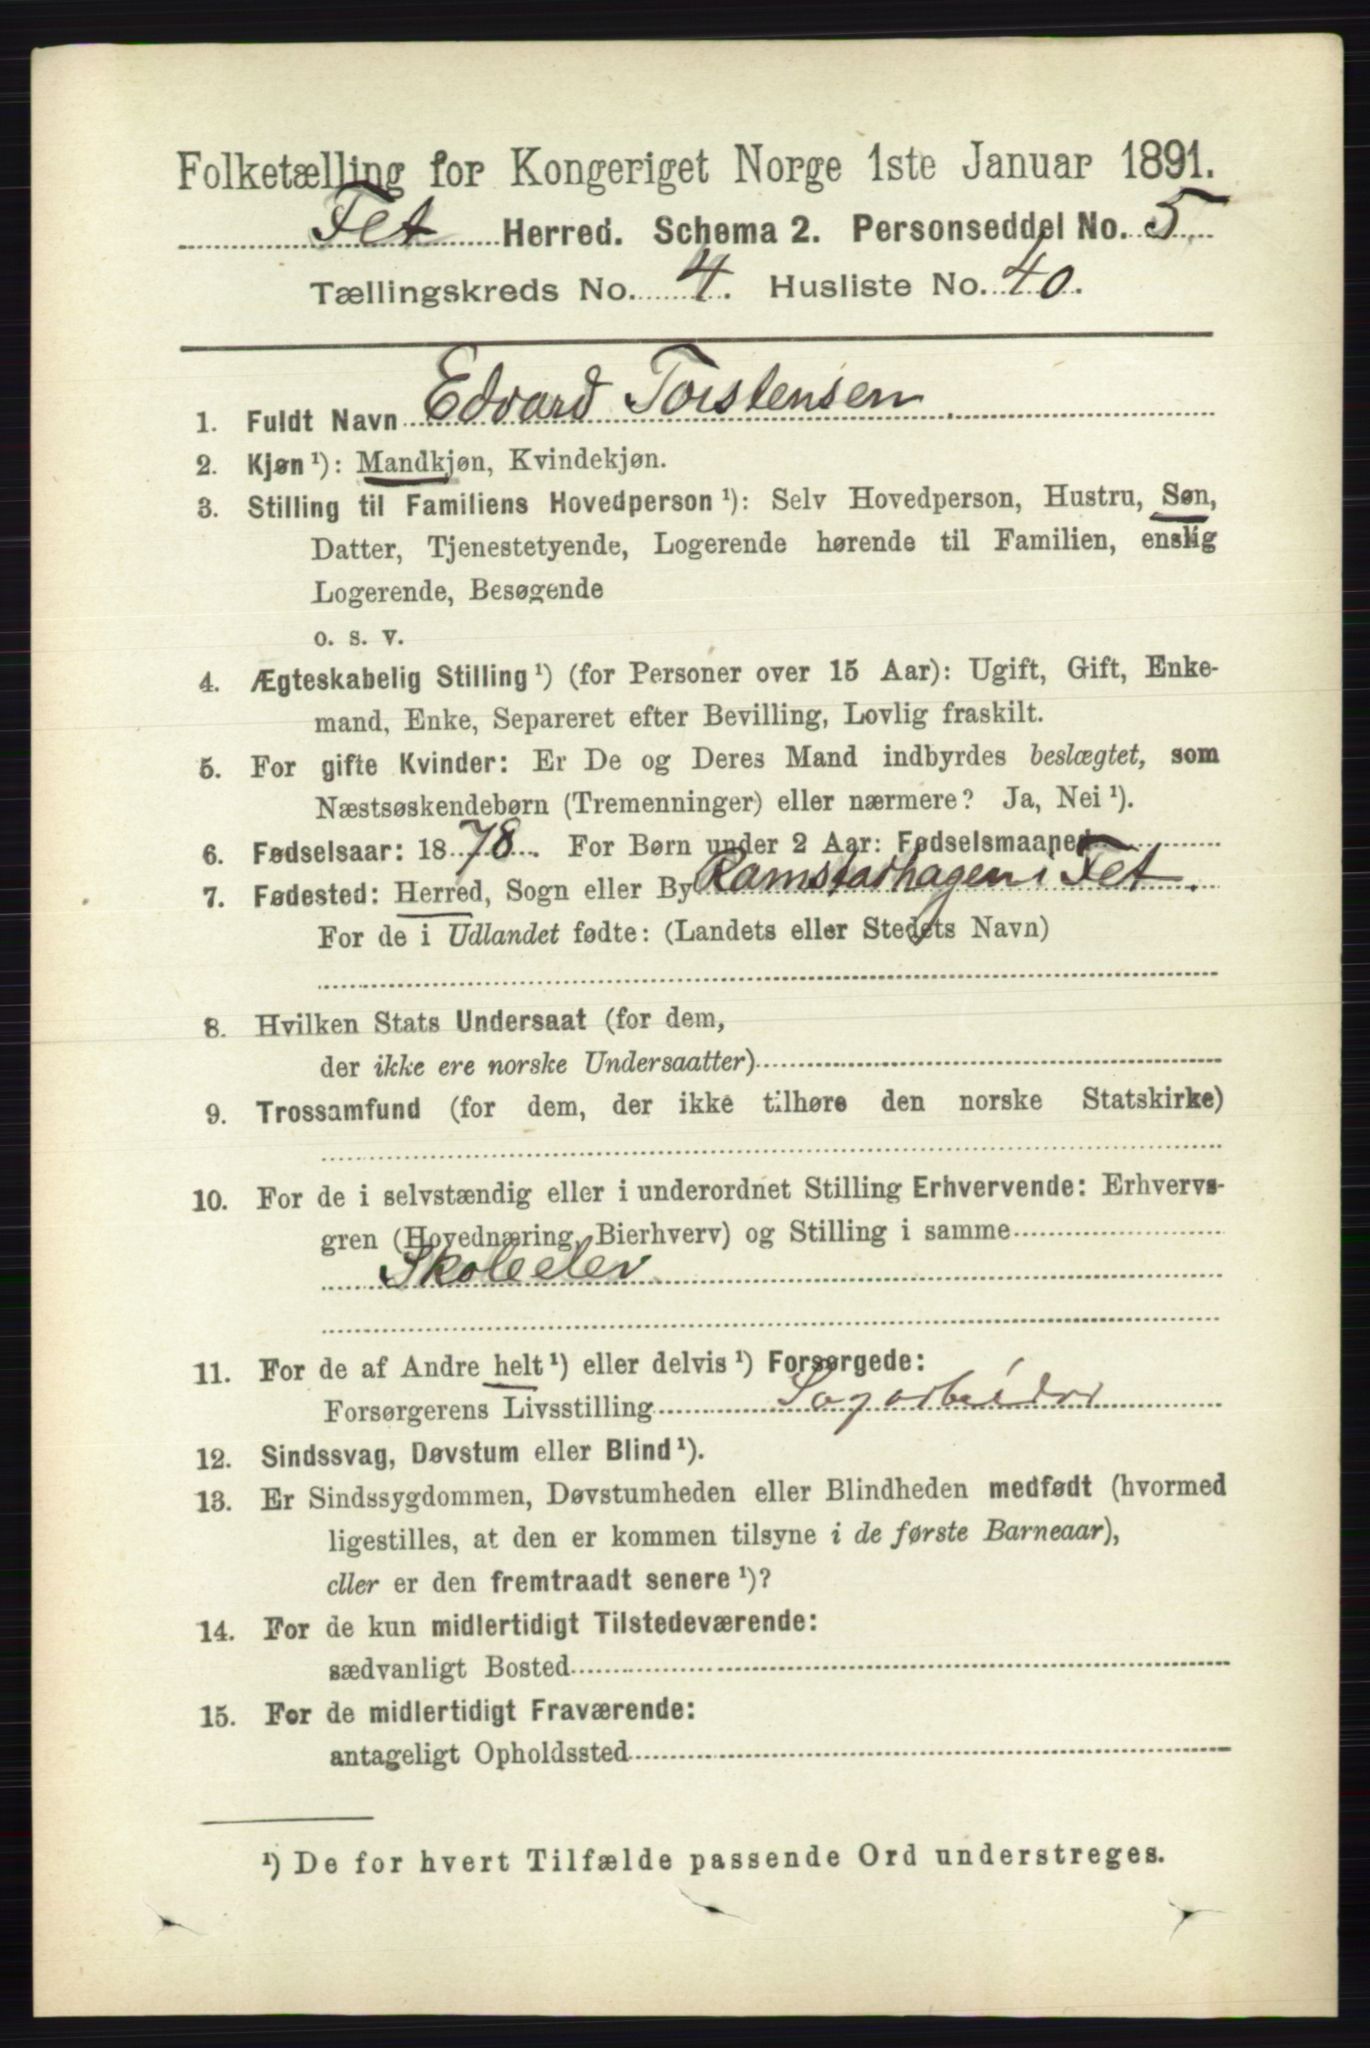 Folketælling for Kongeriget Norge 1ste Januar 1891.
Fet Herred. Schema 2. Personseddel No. 5.
Tællingskreds No. 4. Husliste No. 40.
1. Fuldt Navn Edvard Torstensen.
2. Kjøn ¹): Mandkjøn, Kvindekjøn.
3. Stilling til Familiens Hovedperson ¹): Selv Hovedperson, Hustru, Søn,
Datter, Tjenestetyende, Logerende hørende til Familien, enslig
Logerende, Besøgende
o. s. v.
4. Ægteskabelig Stilling ¹) (for Personer over 15 Aar): Ugift, Gift, Enke-
mand, Enke, Separeret efter Bevilling, Lovlig fraskilt.
5. For gifte Kvinder: Er De og Deres Mand indbyrdes beslægtet, som
Næstsøskendebørn (Tremenninger) eller nærmere? Ja, Nei ¹).
6. Fødselsaar: 1878. For Børn under 2 Aar: Fødselsmaaned
7. Fødested: Herred, Sogn eller By Ramstadhagen i Fet.
For de i Udlandet fødte: (Landets eller Stedets Navn)
8. Hvilken Stats Undersaat (for dem,
der ikke ere norske Undersaatter)
9. Trossamfund (for dem, der ikke tilhøre den norske Statskirke)
10. For de i selvstændig eller i underordnet Stilling Erhvervende: Erhvervs-
gren (Hovednæring, Bierhverv) og Stilling i samme
Skoleelev
11. For de af Andre helt ¹) eller delvis ¹) Forsørgede:
Forsørgerens Livsstilling Sagarbeider
12. Sindssvag, Døvstum eller Blind ¹).
13. Er Sindssygdommen, Døvstumheden eller Blindheden medfødt (hvormed
ligestilles, at den er kommen tilsyne i de første Barneaar),
eller er den fremtraadt senere ¹)?
14. For de kun midlertidigt Tilstedeværende:
sædvanligt Bosted
15. For de midlertidigt Fraværende:
antageligt Opholdssted
¹) De for hvert Tilfælde passende Ord understreges.